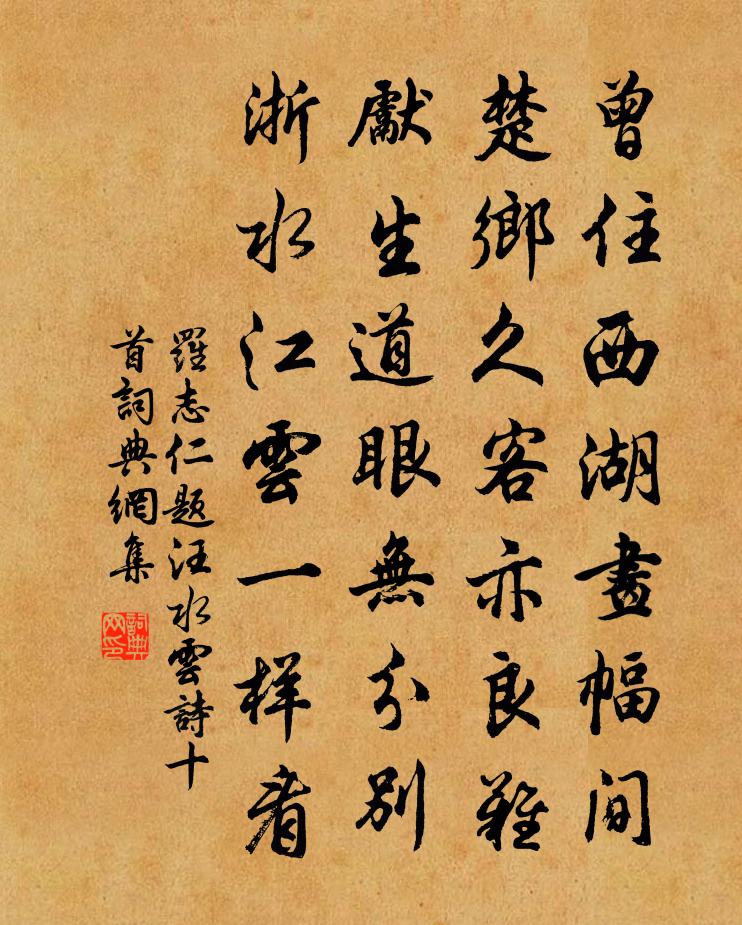 曾住西湖畫幅間
楚鄉久客亦良難
獻生道眼無分別
浙水江雲一样看
羅志仁题汪水雲詩十
首詞典網集
詞典
网印